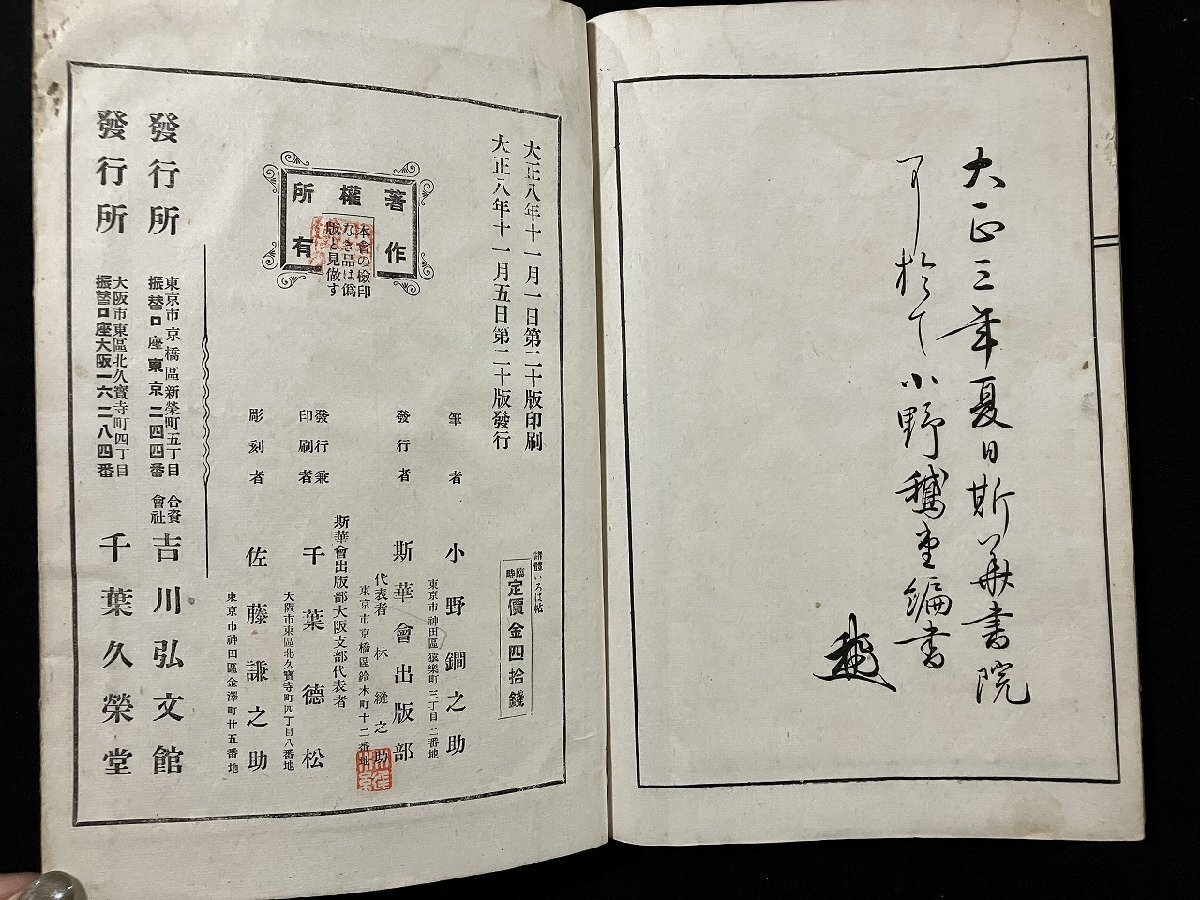 大正三年夏日斯華書院
に於て小野鵞堂編書
大正八年十一月一日第二十版印刷
大正八年十一月五日第二十版發行
著作權所有
本會の檢印
なき品は僞
版と見做す
諸體いろは帖
臨時定價金四拾錢
筆者 小野鋼之助
東京市神田區猿樂町三丁目二番地
發行者 斯華會出版部
代表者 林縫之助
東京市京橋區鈴木町十二番地
斯華會出版部大阪支部代表者
發行兼印刷者 千葉德松
大阪市東區北久寶寺町四丁目八番地
彫刻者 佐藤謙之助
東京市神田區金澤町廿五番地
發行所 東京市京橋區新榮町五丁目 振替口座東京二四四番 合資會社 吉川弘文館
發行所 大阪市東區北久寶寺町四丁目 振替口座大阪一六二八四番 千葉久榮堂